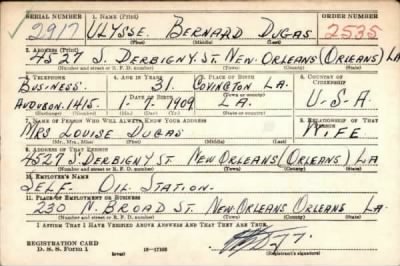 SERIAL NUMBER 1. NAME (Print) ORDER NUMBER
2917 ULYSSE. BERNARD DUGAS 2535
(First) (Middle) (Last)
2. ADDRESS (Print)
4527 S. DERBIGNY. ST. NEW. ORLEANS (ORLEANS) LA
(Number and street or R. F. D. number) (Town) (County) (State)
3. TELEPHONE 4. AGE IN YEARS 5. PLACE OF BIRTH 6. COUNTRY OF CITIZENSHIP
BUSINESS. 31. COVINGTON LA.
DATE OF BIRTH (Town or county)
AUDUBON. 1415. 1-7-1909 LA. U-S-A
(State or country)
7. NAME OF PERSON WHO WILL ALWAYS KNOW YOUR ADDRESS 8. RELATIONSHIP OF THAT PERSON
MRS LOUISE DUGAS WIFE
(Mr., Mrs., Miss) (First) (Middle) (Last)
9. ADDRESS OF THAT PERSON
4527 S. DERBIGNY ST NEW ORLEANS (ORLEANS) LA
(Number and street or R. F. D. number) (Town) (County) (State)
10. EMPLOYER'S NAME
SELF- OIL STATION-
11. PLACE OF EMPLOYMENT OR BUSINESS
230 N. BROAD ST. NEW-ORLEANS ORLEANS LA.
(Number and street or R. F. D. number) (Town) (County) (State)
I AFFIRM THAT I HAVE VERIFIED ABOVE ANSWERS AND THAT THEY ARE TRUE.
REGISTRATION CARD
D. S. S. Form 1 (over) 16-17105 (Registrant's signature)